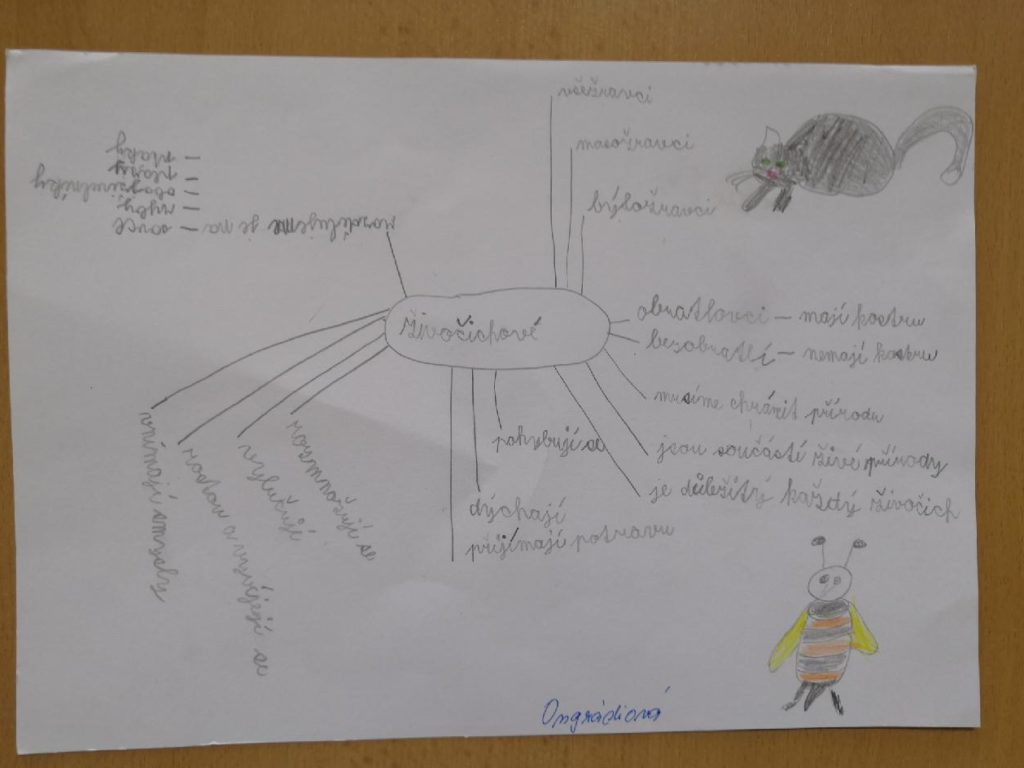 všežravci
masožravci
býložravci
rozdělujeme je na — savce
— ryby
— obojživelníky
— plazy
— ptáky
živočichové
obratlovci — mají kostru
bezobratlí — nemají kostru
musíme chránit přírodu
jsou součástí živé přírody
je důležitý každý živočich
pohybují se
dýchají
přijímají potravu
rozmnožují se
vylučují
rostou a vyvíjejí se
vnímají smysly
Ongrádiová